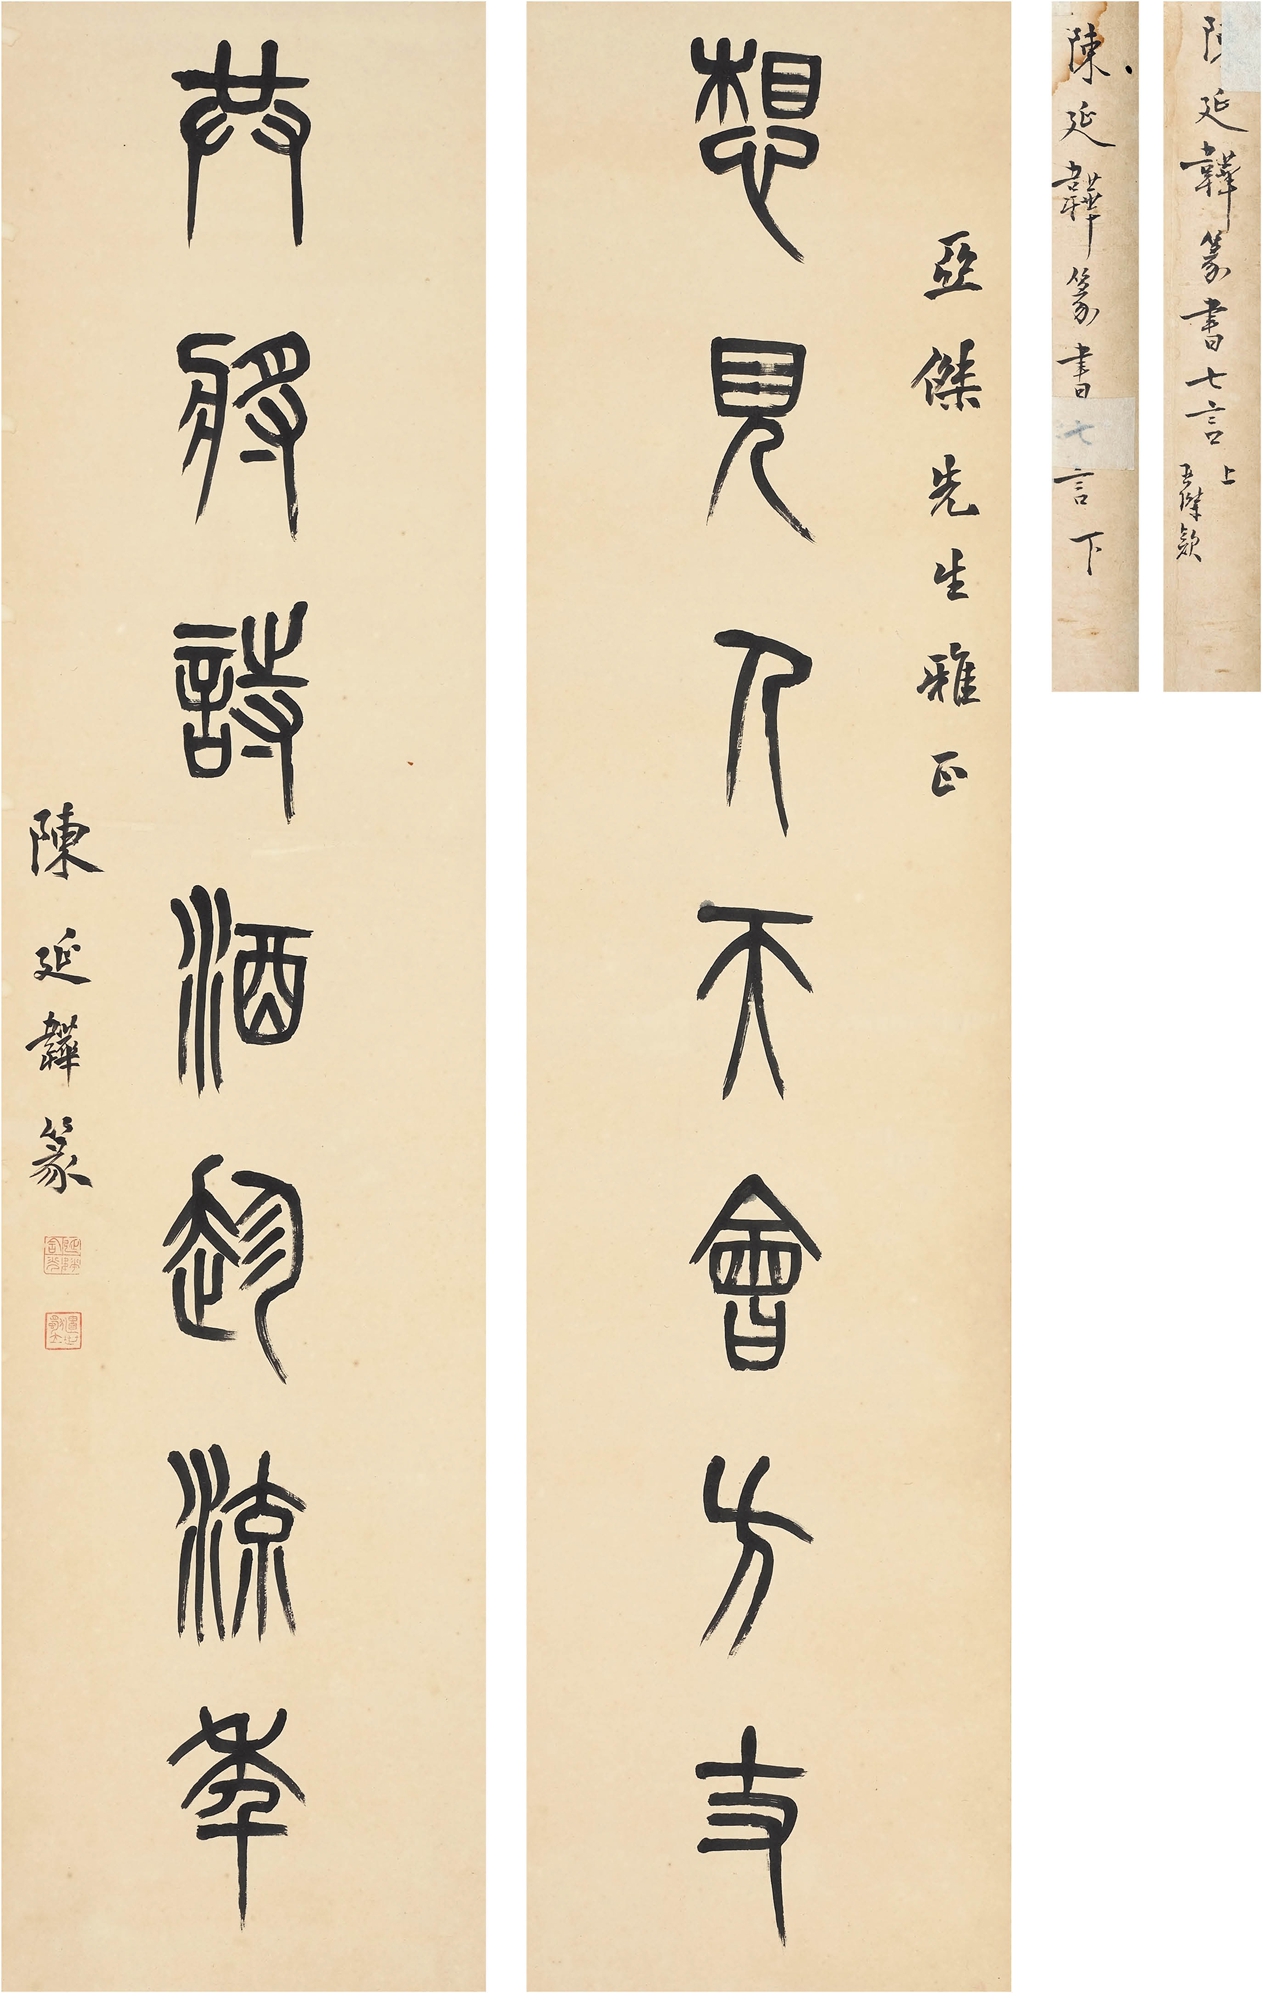 陳延韡篆書七言上
亞傑款
陳延韡篆書七言下
亞傑先生雅正
想見人天會方丈
共將詩酒趁流年
陳延韡篆